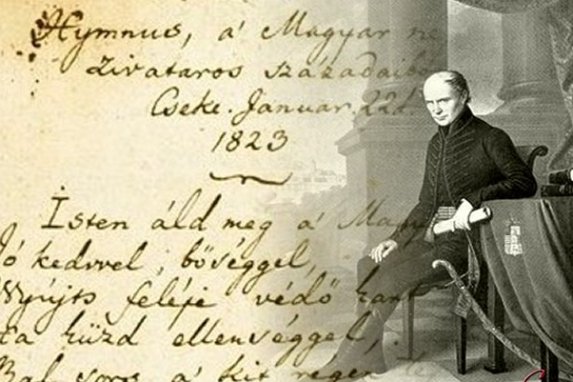 Hymnus, a' Magyar
zivataros századaib
Cseke. Január. 22d.
1823
Isten áld meg a' Magy
ó kedvvel, bőséggel,
Nyújts feléje védő kart
Ha küzd ellenséggel,
Bal sors a' kit régen